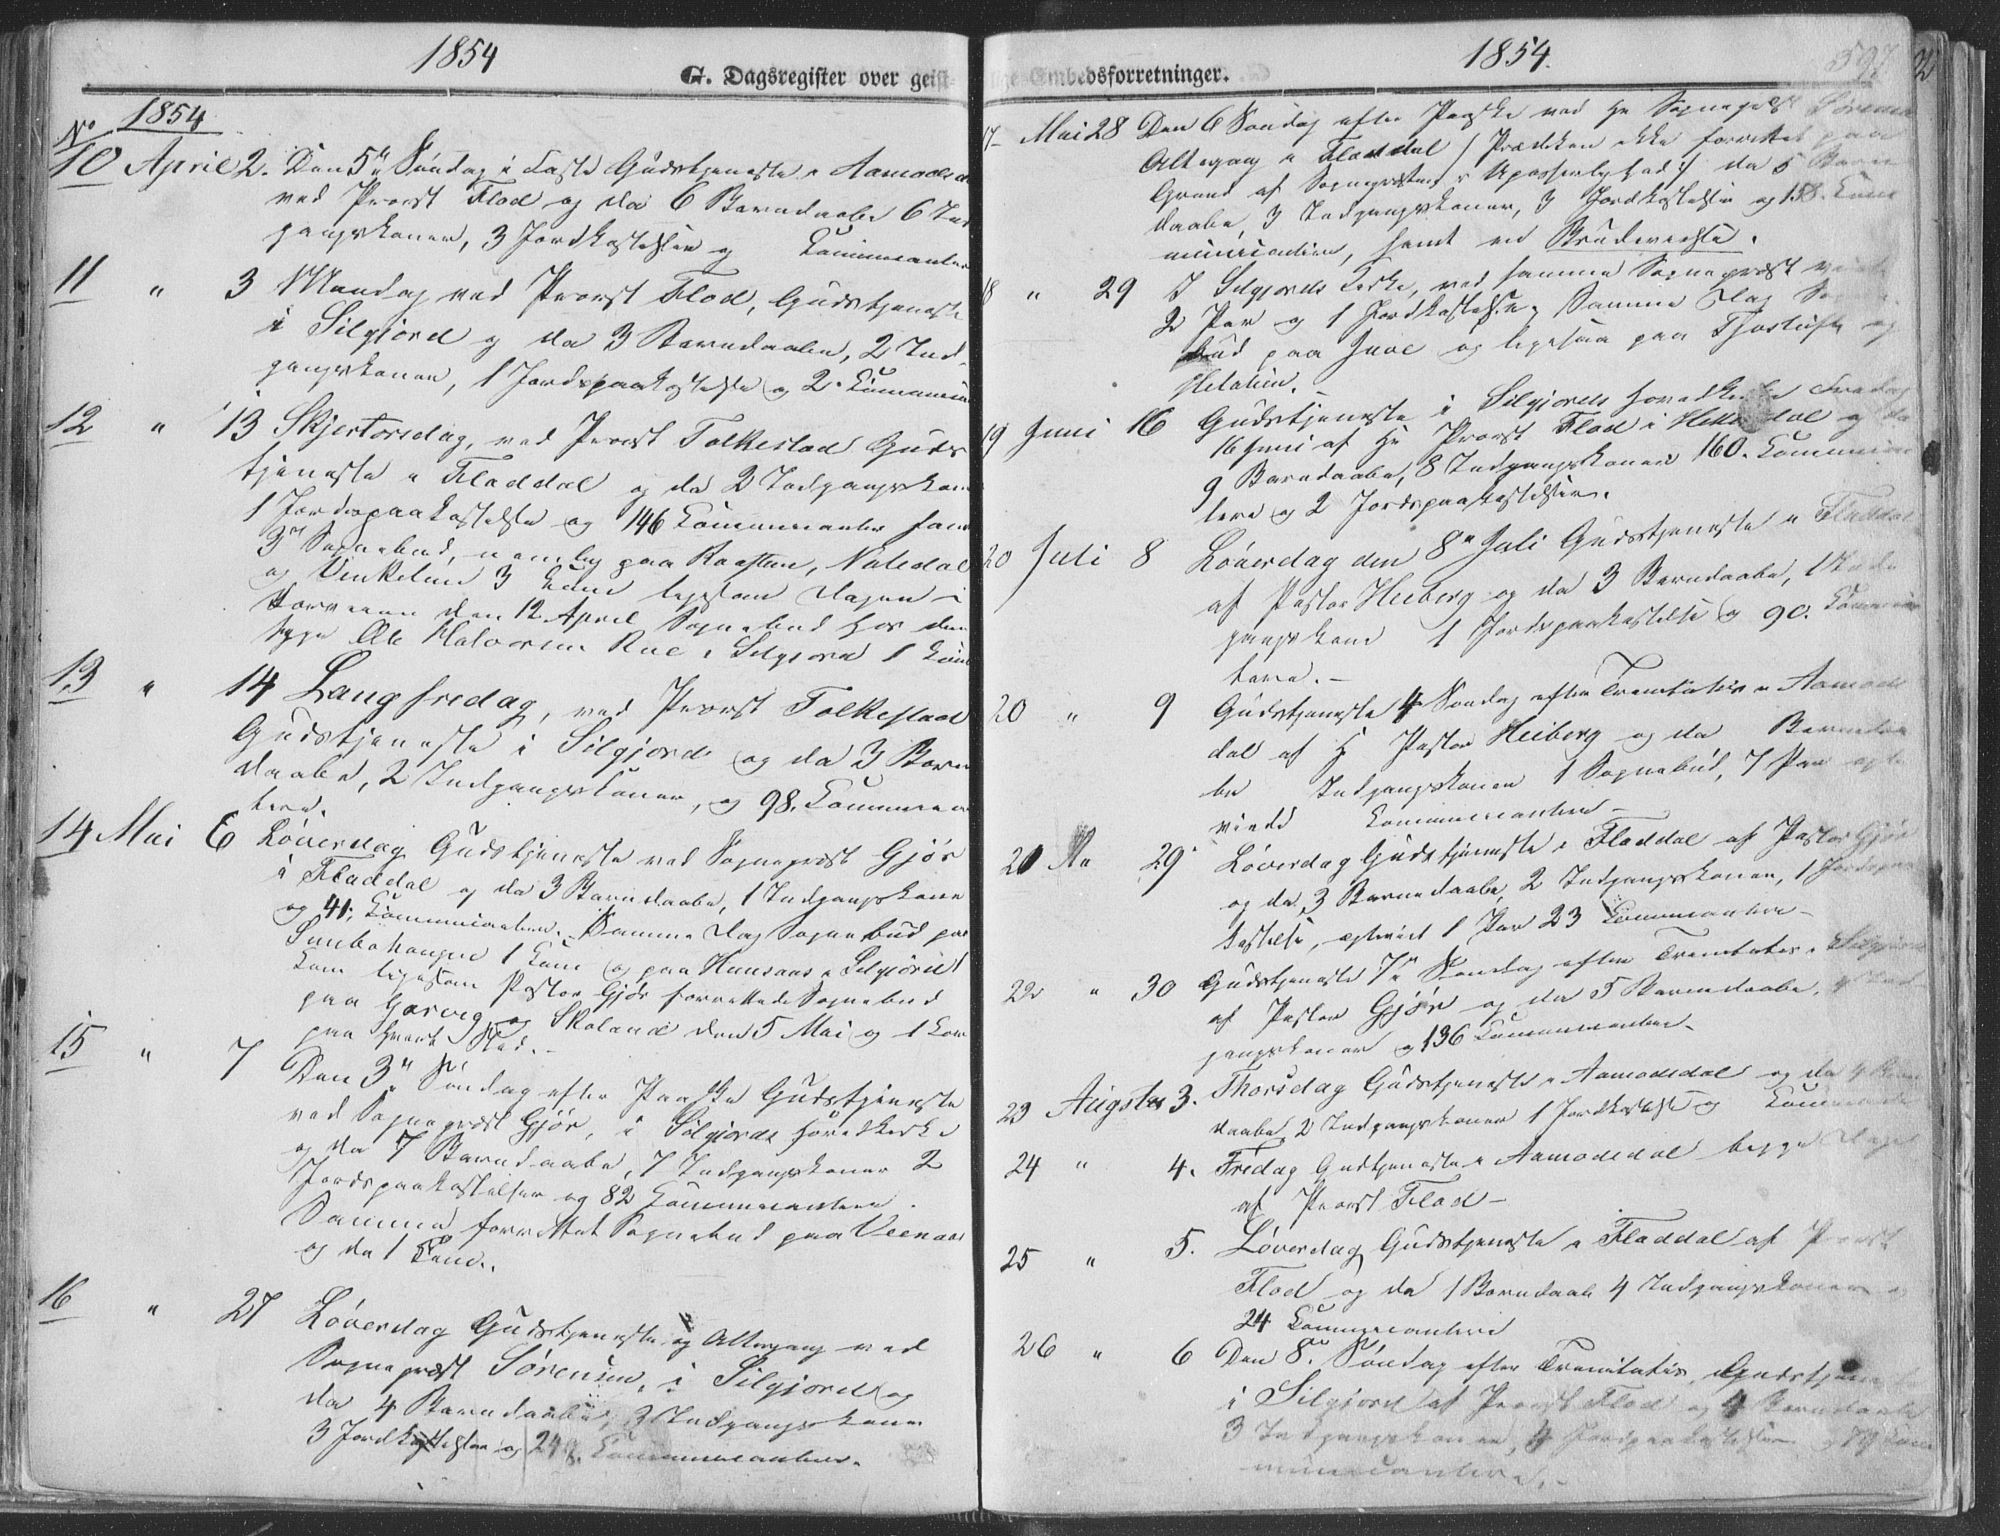 1854
G. Dagsregister over geist-
1854
No
10 April 2. Den 5te Søndag i Faste Gudstjeneste i Aamodsda
ved Provst Flod og da 6 Barndaabe 6 Ind
gangskoner, 3 Jordkastelser og Communicanter
11 " 3 Mandag ved Provst Flod, Gudstjeneste
i Silgjord og da 3 Barndaabe, 2 Ind-
gangskoner, 1 Jordspaakastelse og 2 Communi
12 " 13 Skjertorsdag, ved Provst Folkestad Guds
tjeneste i Fladdal og da 2 Indgangskon
1 Jordspaakastelse og 146 Communicanter samt
3de Sognebud, nemlig paa Raasten, Natedal
og Vinkelien 3 ligesom Dagen i
Forveien den 12 April Sognebud hos den
syge Ole Halvorsen Rue i Silgjord 1 Com
13 " 14 Langfredag, ved Provst Folkestad
Gudstjeneste i Silgjord og da 3 Barne
daabe, 2 Indgangskoner, og 98. Communican
tere.
14 Mai 6 Løverdag Gudstjeneste ved Sognepræst Gjør
i Fladdal og da 3 Barndaabe, 1 Indgangskone
og 41. Communicanter. Samme Dag Sognebud paa
1 Com og paa i Silgjord 1
Com ligesom Pastor Gjør forrettede Sognebud
paa Garvig og Skoland den 5 Mai og 1 Com
paa hvert Sted. -
15 " 7 Den 3die Søndag efter Paaske Gudstjeneste
ved Sognepræst Gjør, i Silgjords Hovedkirke
og da 7 Barndaabe, 7 Indgangskoner 2
Jordspaakastelser og 82 Communicantere.
Samme forrettet Sognebud paa
og da 1 Com.
16 " 27 Løverdag Gudstjeneste og Altergang ved
Sognepræst Sørensen, i Silgjord og
da 4 Barndaabe, 3 Indgangskoner
3 Jordkastelser og Communicanter.
lige Embedsforretninger.
1854.
597
17 Mai 28 Den 6 Søndag efter Paaske ved Hr Sognepræst Sørensen
Altergang i Fladdal /: Prædiken ikke forrettet paa
Grund af Sognepræstens Upasselighed :/ da 5 Barn
daabe, 3 Indgangskoner, 3 Jordkastelser og 158. Com
municantere, samt en Brudevielse.
18 " 29 I Silgjords Kirke, ved samme Sognepræst viet
2 Par og 1 Jordkastelse, Samme Dag Sogne
bud paa Juve og ligesaa paa og
19 Juni 16 Gudstjeneste i Silgjords Hovedkirke Fredag
16 Juni af Hr Provst Flod i og da
9 Barndaabe, 8 Indgangskoner 160. Communican
tere og 2 Jordspaakastelser.
20 Juli 8 Løverdag den 8de Juli Gudstjeneste i Fladdal
af Pastor Heiberg og da 3 Barndaabe, 1 Ind
gangskone 1 Jordspaakastelse og 90. Communican
tere. -
20 " 9 Gudstjeneste 4 Søndag efter Trinitatis i Aamods
dal af H Pastor Heiberg og da Barnedaa
be Indgangskoner 1 Sognebud, 7 Par ægte
viede Communicantere -
21 29 Løverdag Gudstjeneste i Fladdal af Pastor Gjør
og da 3 Barnedaabe, 2 Indgangskoner, 1 Jordspaa
kastelse, ægteviet 1 Par 23 Communicantere -
22 " 30 Gudstjeneste 7de Søndag efter Trinitatis i Silgjord
af Pastor Gjør og da 5 Barnedaabe, 4 Ind
gangskoner og 136 Communicantere.
23 August 3. Thorsdag Gudstjeneste i Aamodsdal og da 4 Barn
daabe, 2 Indgangskoner 1 Jordkastelse og Communicante
24 " 4. Fredag Gudtjeneste i Aamodsdal begge Dage
af Provst Flod -
25 " 5. Løverdag Gudstjeneste i Fladdal af Provst
Flod og da 1 Barndaab 4 Indgangskoner og
24 Communicantere
26 " 6 Den 8de Søndag efter Trinitatis Gudstjeneste
i Silgjord af Provst Flod og 4 Barndaabe
3 Indgangskoner, 4 Jordspaakastelser og 79 Com
municantere. -